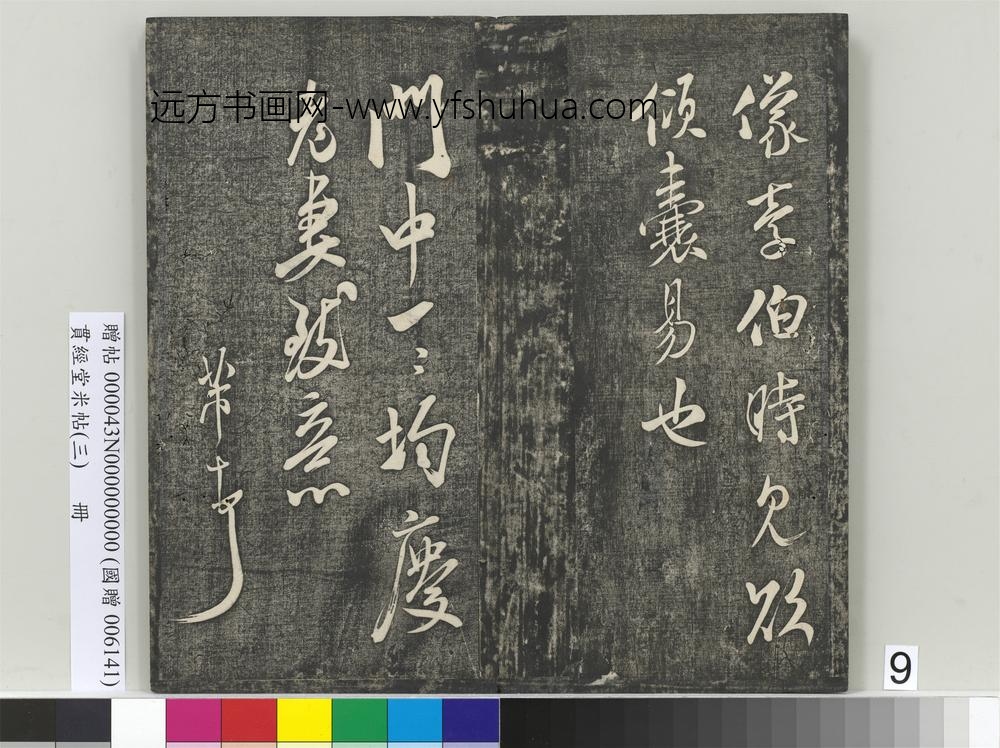 远方书画网-www.yfshuhua.com
像李伯時見欲
傾囊易也
門中一ミ均慶
老妻致意
芾
贈帖 000043N000000000 (國贈 006141)
貫經堂米帖(三) 冊
9